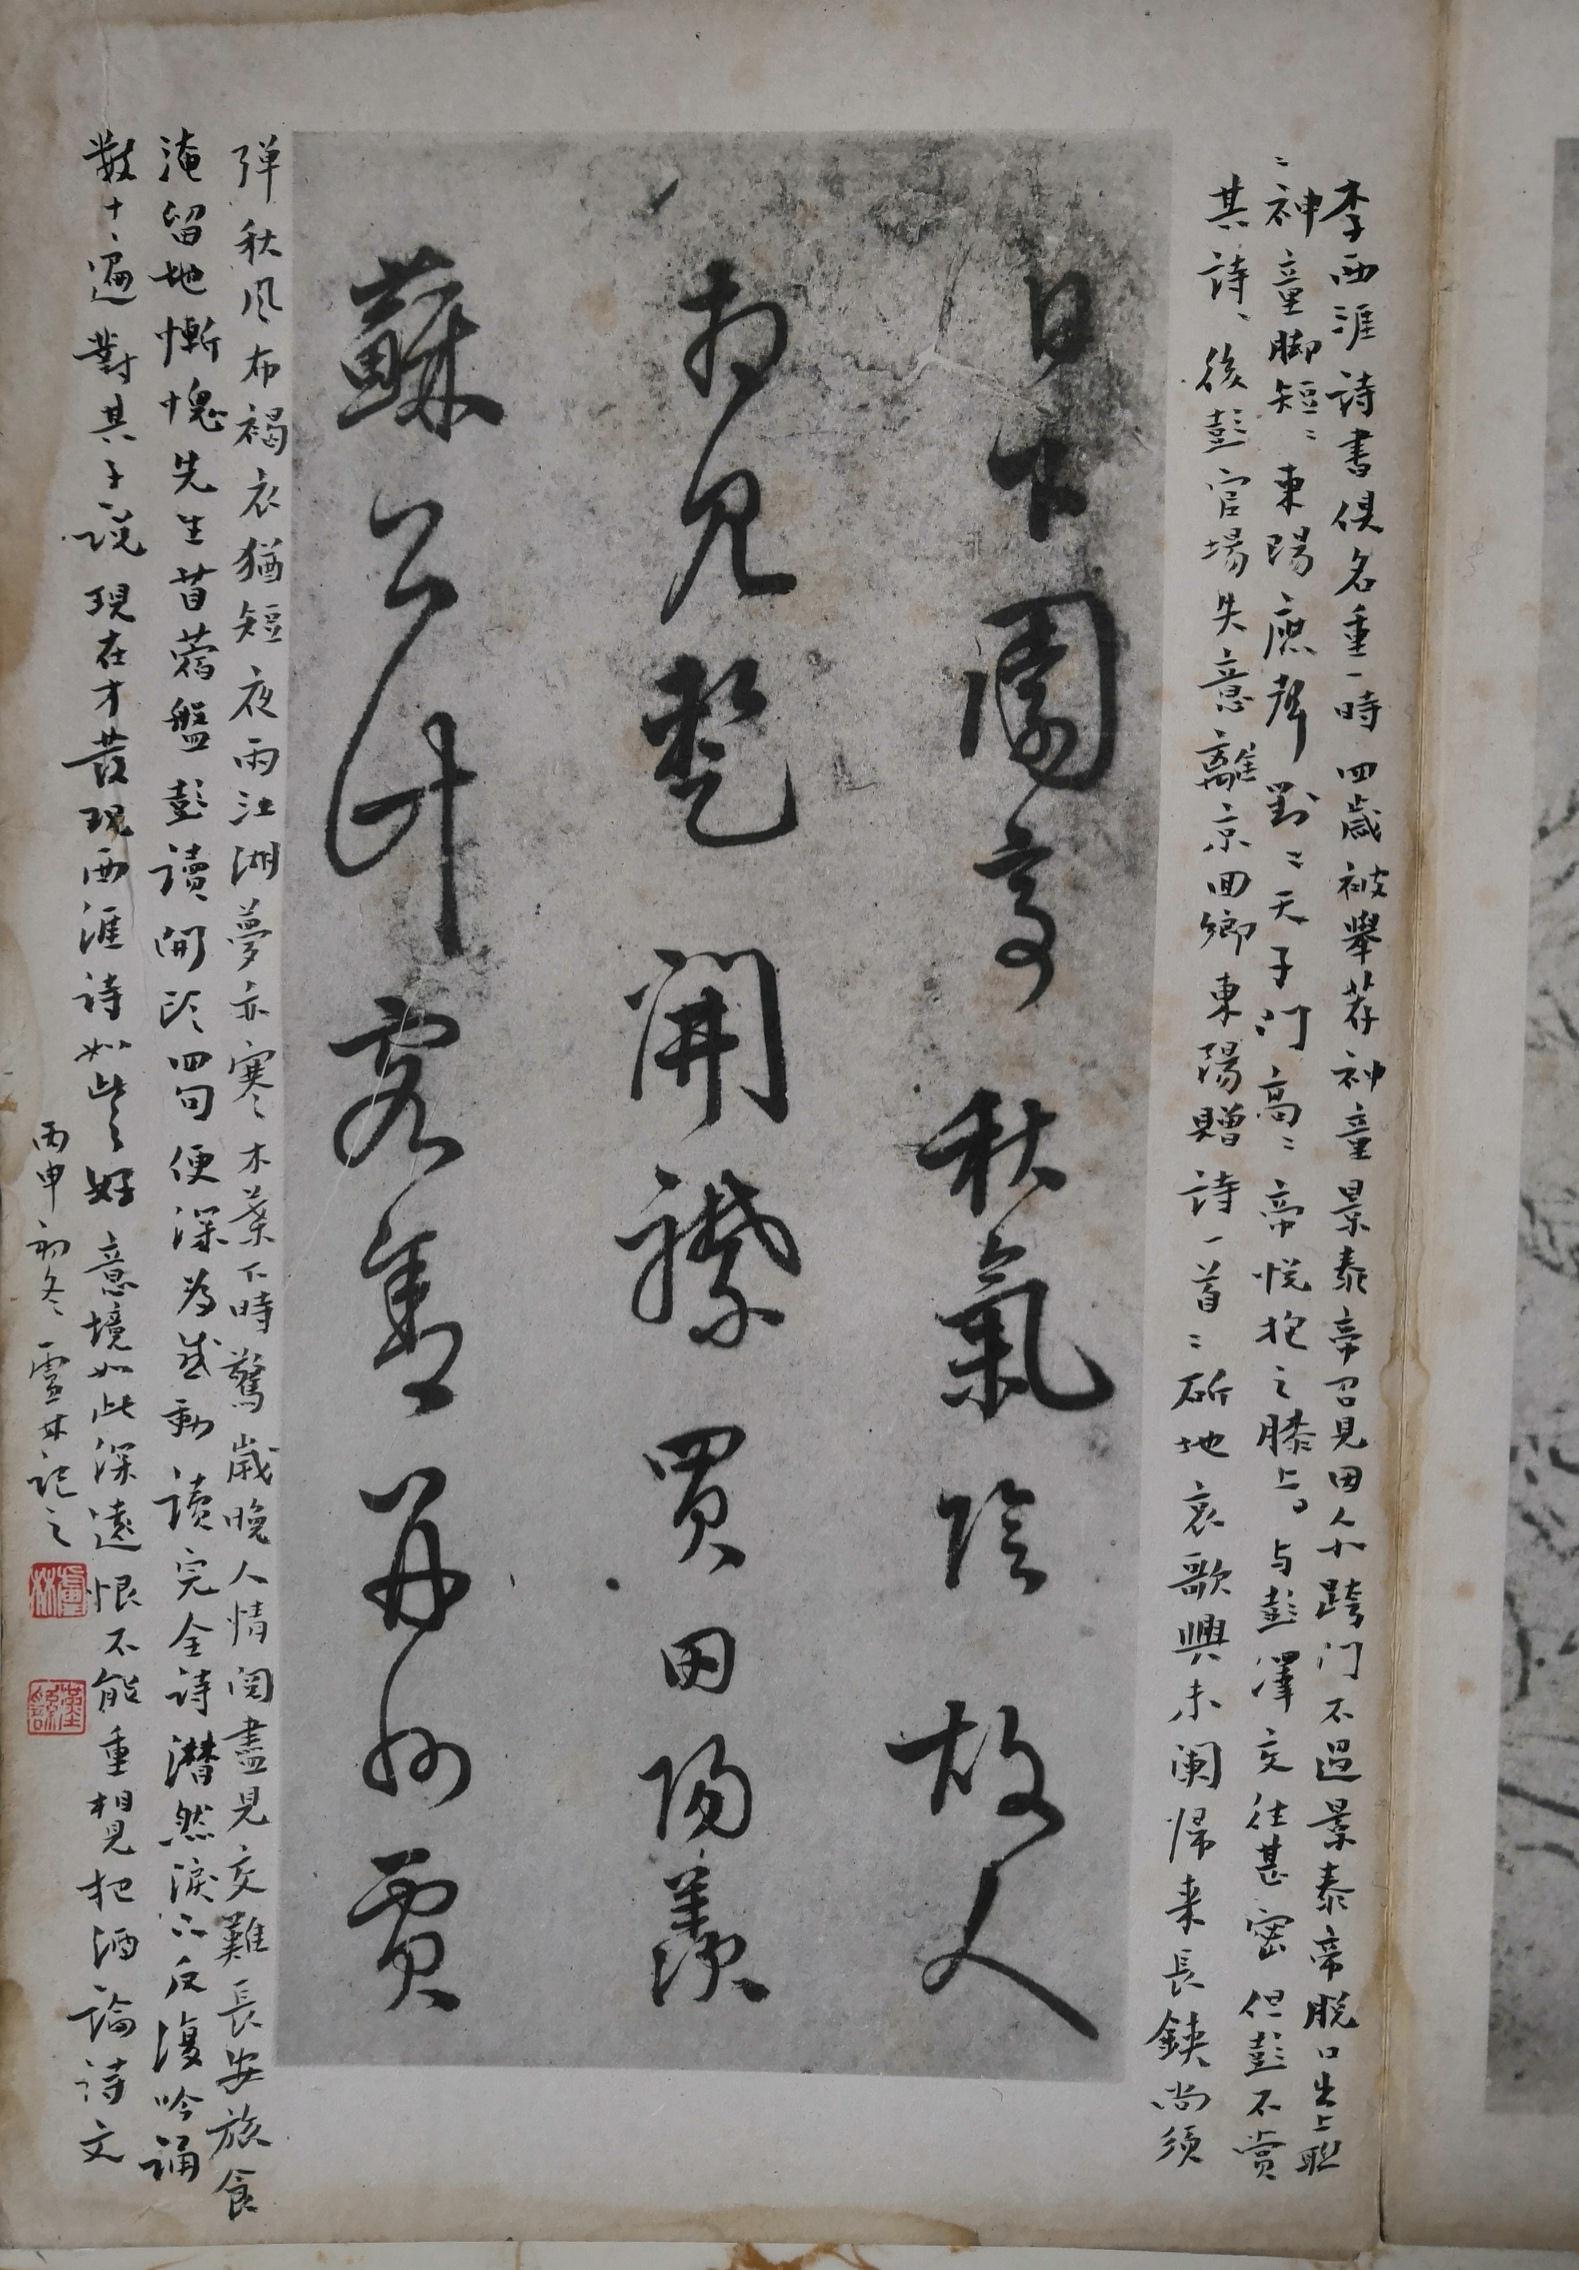 李西涯詩書俱名重一時四歲被舉荐神童景泰帝召見因人小跨门不過景泰帝脱口出上联
:神童脚短:東陽應聲對:天子门高:帝悦抱之膝上与彭澤交往甚密但彭不赏
其詩、後彭官場失意離京回鄉東陽贈詩一首:斫地哀歌興未阑歸来長鋏尚须
日下園亭秋氣陰故人
相見整開襟買田陽羨
蘇公計客舍并州賈
弹秋风布褐衣猶短夜雨江湖夢亦寒木葉下時驚歲晚人情阅盡見交難長安旅食
淹留地慚愧先生苜蓿盤彭讀開头四句便深為感動读完全诗潸然淚下反復吟诵
數十遍對其子說現在才發現西涯诗如此之好意境如此深遠恨不能重相見把酒論詩文
丙申初冬 林記之